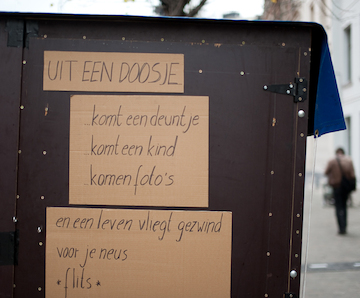 UIT EEN DOOSJE
...komt een deuntje
komt een kind
komen foto's
en een leven vliegt gezwind
voor je neus
*flits*